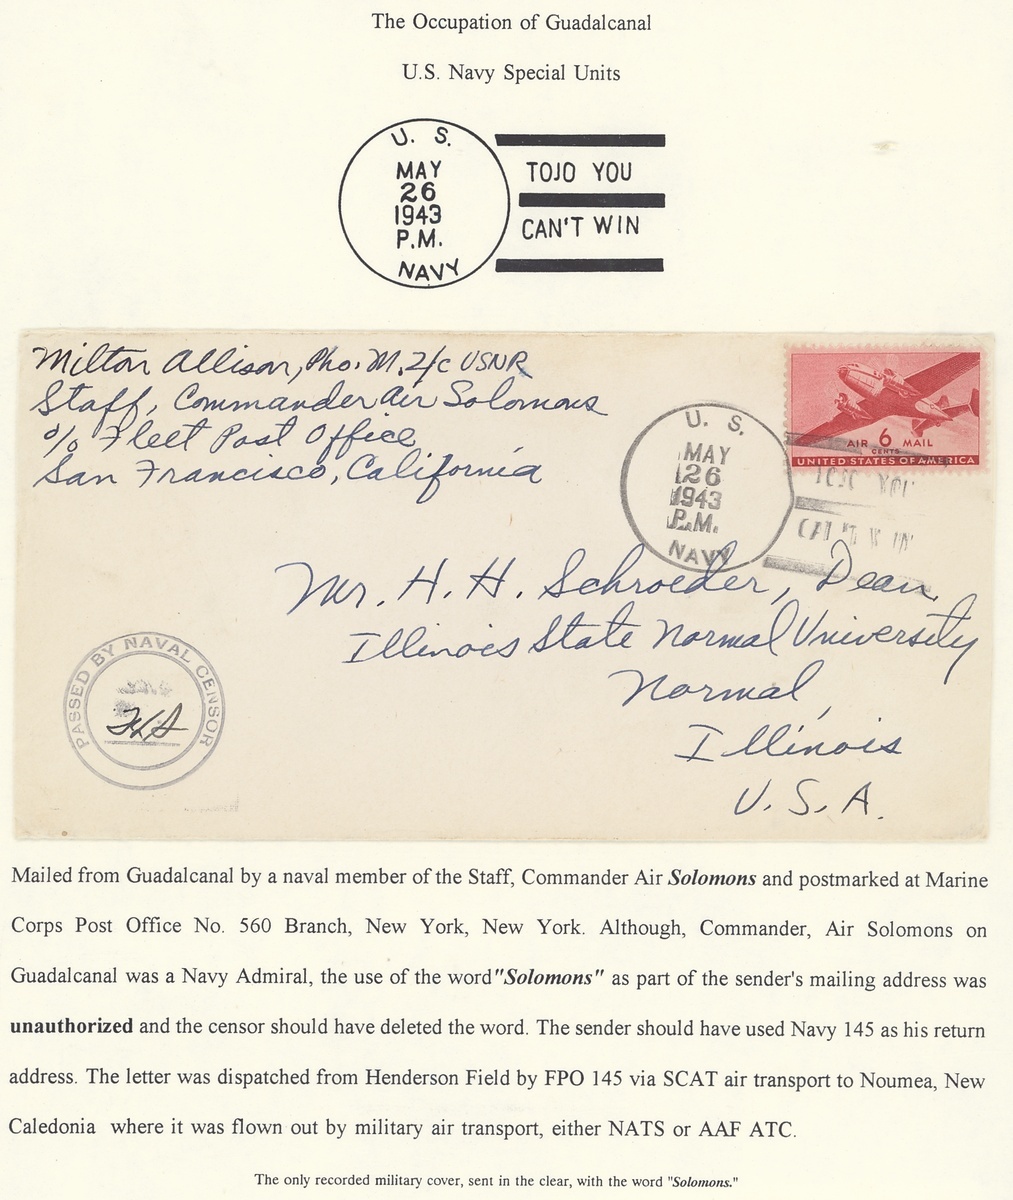 The Occupation of Guadalcanal
U.S. Navy Special Units
U. S.
MAY
26
1943
P.M.
NAVY
TOJO YOU
CAN'T WIN
Milton Allison, Pho. M. 2/c USNR
Staff, Commander Air Solomons
% Fleet Post Office
San Francisco, California
U. S.
MAY
26
1943
P.M.
NAVY
TOJO YOU
CAN'T WIN
AIR 6 MAIL
CENTS
UNITED STATES OF AMERICA
Mr. H. H. Schroeder, Dean
Illinois State Normal University
Normal,
Illinois
U. S. A.
PASSED BY NAVAL CENSOR
Mailed from Guadalcanal by a naval member of the Staff, Commander Air Solomons and postmarked at Marine
Corps Post Office No. 560 Branch, New York, New York. Although, Commander, Air Solomons on
Guadalcanal was a Navy Admiral, the use of the word "Solomons" as part of the sender's mailing address was
unauthorized and the censor should have deleted the word. The sender should have used Navy 145 as his return
address. The letter was dispatched from Henderson Field by FPO 145 via SCAT air transport to Noumea, New
Caledonia where it was flown out by military air transport, either NATS or AAF ATC.
The only recorded military cover, sent in the clear, with the word "Solomons."